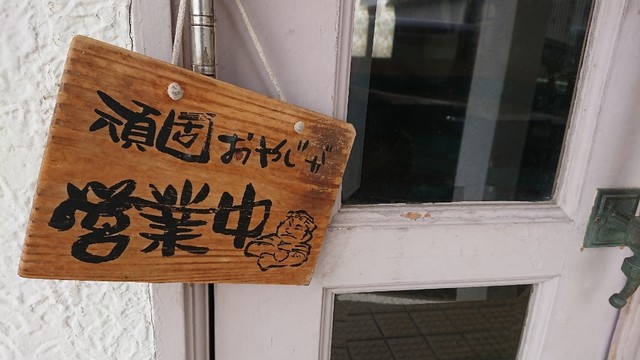 頑固おやじが
営業中